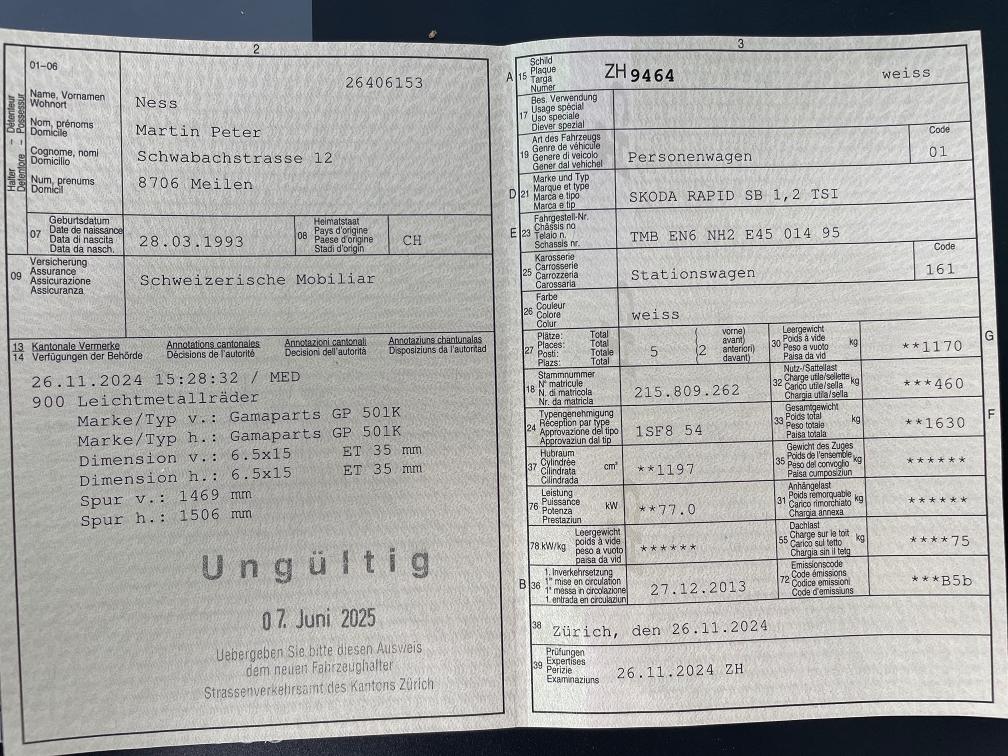 2
01-06
26406153
Halter – Détenteur
Detentore – Possessur
Name, Vornamen
Wohnort
Nom, prénoms
Domicile
Cognome, nomi
Domicilio
Num, prenums
Domicil
Ness
Martin Peter
Schwabachstrasse 12
8706 Meilen
07
Geburtsdatum
Date de naissance
Data di nascita
Data da nasch.
28.03.1993
08
Heimatstaat
Pays d'origine
Paese d'origine
Stadi d'origin
CH
09
Versicherung
Assurance
Assicurazione
Assicuranza
Schweizerische Mobiliar
13 Kantonale Vermerke
14 Verfügungen der Behörde
Annotations cantonales
Décisions de l'autorité
Annotazioni cantonali
Decisioni dell'autorità
Annotaziuns chantunalas
Disposiziuns da l'autoritad
26.11.2024 15:28:32 / MED
900 Leichtmetallräder
Marke/Typ v.: Gamaparts GP 501K
Marke/Typ h.: Gamaparts GP 501K
Dimension v.: 6.5x15 ET 35 mm
Dimension h.: 6.5x15 ET 35 mm
Spur v.: 1469 mm
Spur h.: 1506 mm
Ungültig
07. Juni 2025
Uebergeben Sie bitte diesen Ausweis
dem neuen Fahrzeughalter
Strassenverkehrsamt des Kantons Zürich
3
A 15
Schild
Plaque
Targa
Numer
ZH 9464 weiss
17
Bes. Verwendung
Usage spécial
Uso speciale
Diever spezial
19
Art des Fahrzeugs
Genre de véhicule
Genere di veicolo
Gener dal vehichel
Personenwagen
Code
01
D 21
Marke und Typ
Marque et type
Marca e tipo
Marca e tip
SKODA RAPID SB 1,2 TSI
E 23
Fahrgestell-Nr.
Châssis no
Telaio n.
Schassis nr.
TMB EN6 NH2 E45 014 95
25
Karosserie
Carrosserie
Carrozzeria
Carossaria
Stationswagen
Code
161
26
Farbe
Couleur
Colore
Colur
weiss
27
Plätze: Total
Places: Total
Posti: Totale
Plazs: Total
5
(2
vorne)
avant)
anteriori)
davant)
30
Leergewicht
Poids à vide
Peso a vuoto
Paisa da vid
kg
**1170
G
18
Stammnummer
N° matricule
N. di matricola
Nr. da matricla
215.809.262
32
Nutz-/Sattellast
Charge utile/sellette
Carico utile/sella
Chargia utila/sella
kg
***460
24
Typengenehmigung
Réception par type
Approvazione del tipo
Approvaziun dal tip
1SF8 54
33
Gesamtgewicht
Poids total
Peso totale
Paisa totala
kg
**1630
F
37
Hubraum
Cylindrée
Cilindrata
Cilindrada
cm³
**1197
35
Gewicht des Zuges
Poids de l'ensemble
Peso del convoglio
Paisa cumposiziun
kg
******
76
Leistung
Puissance
Potenza
Prestaziun
kW
**77.0
31
Anhängelast
Poids remorquable
Carico rimorchiato
Chargia annexa
kg
******
78 kW/kg
Leergewicht
poids à vide
peso a vuoto
paisa da vid
******
55
Dachlast
Charge sur le toit
Carico sul tetto
Chargia sin il tetg
kg
****75
B 36
1. Inverkehrsetzung
1re mise en circulation
1a messa in circolazione
1. entrada en circulaziun
27.12.2013
72
Emissionscode
Code émissions
Codice emissioni
Code d'emissiuns
***B5b
38
Zürich, den 26.11.2024
39
Prüfungen
Expertises
Perizie
Examinaziuns
26.11.2024 ZH